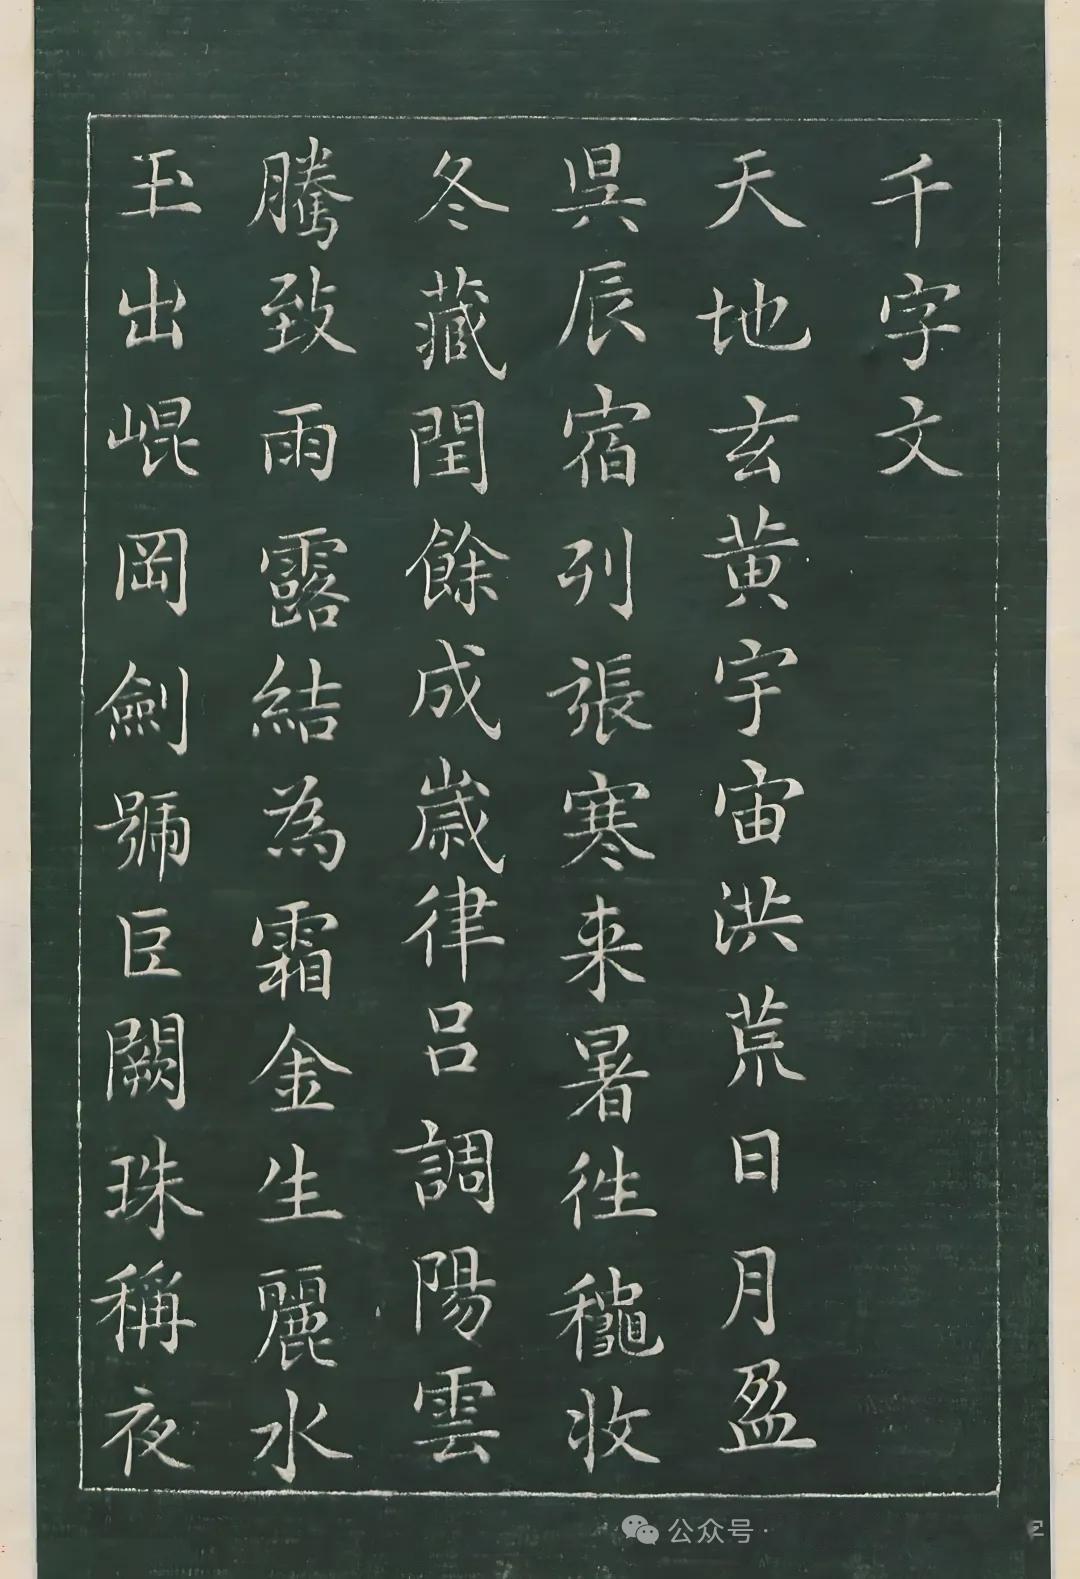 千字文
天地玄黄宇宙洪荒日月盈
昃辰宿列張寒来暑往穐收
冬藏閏餘成歲律吕調陽雲
騰致雨露結為霜金生麗水
玉出崐岡劍號巨闕珠稱夜
公众号·